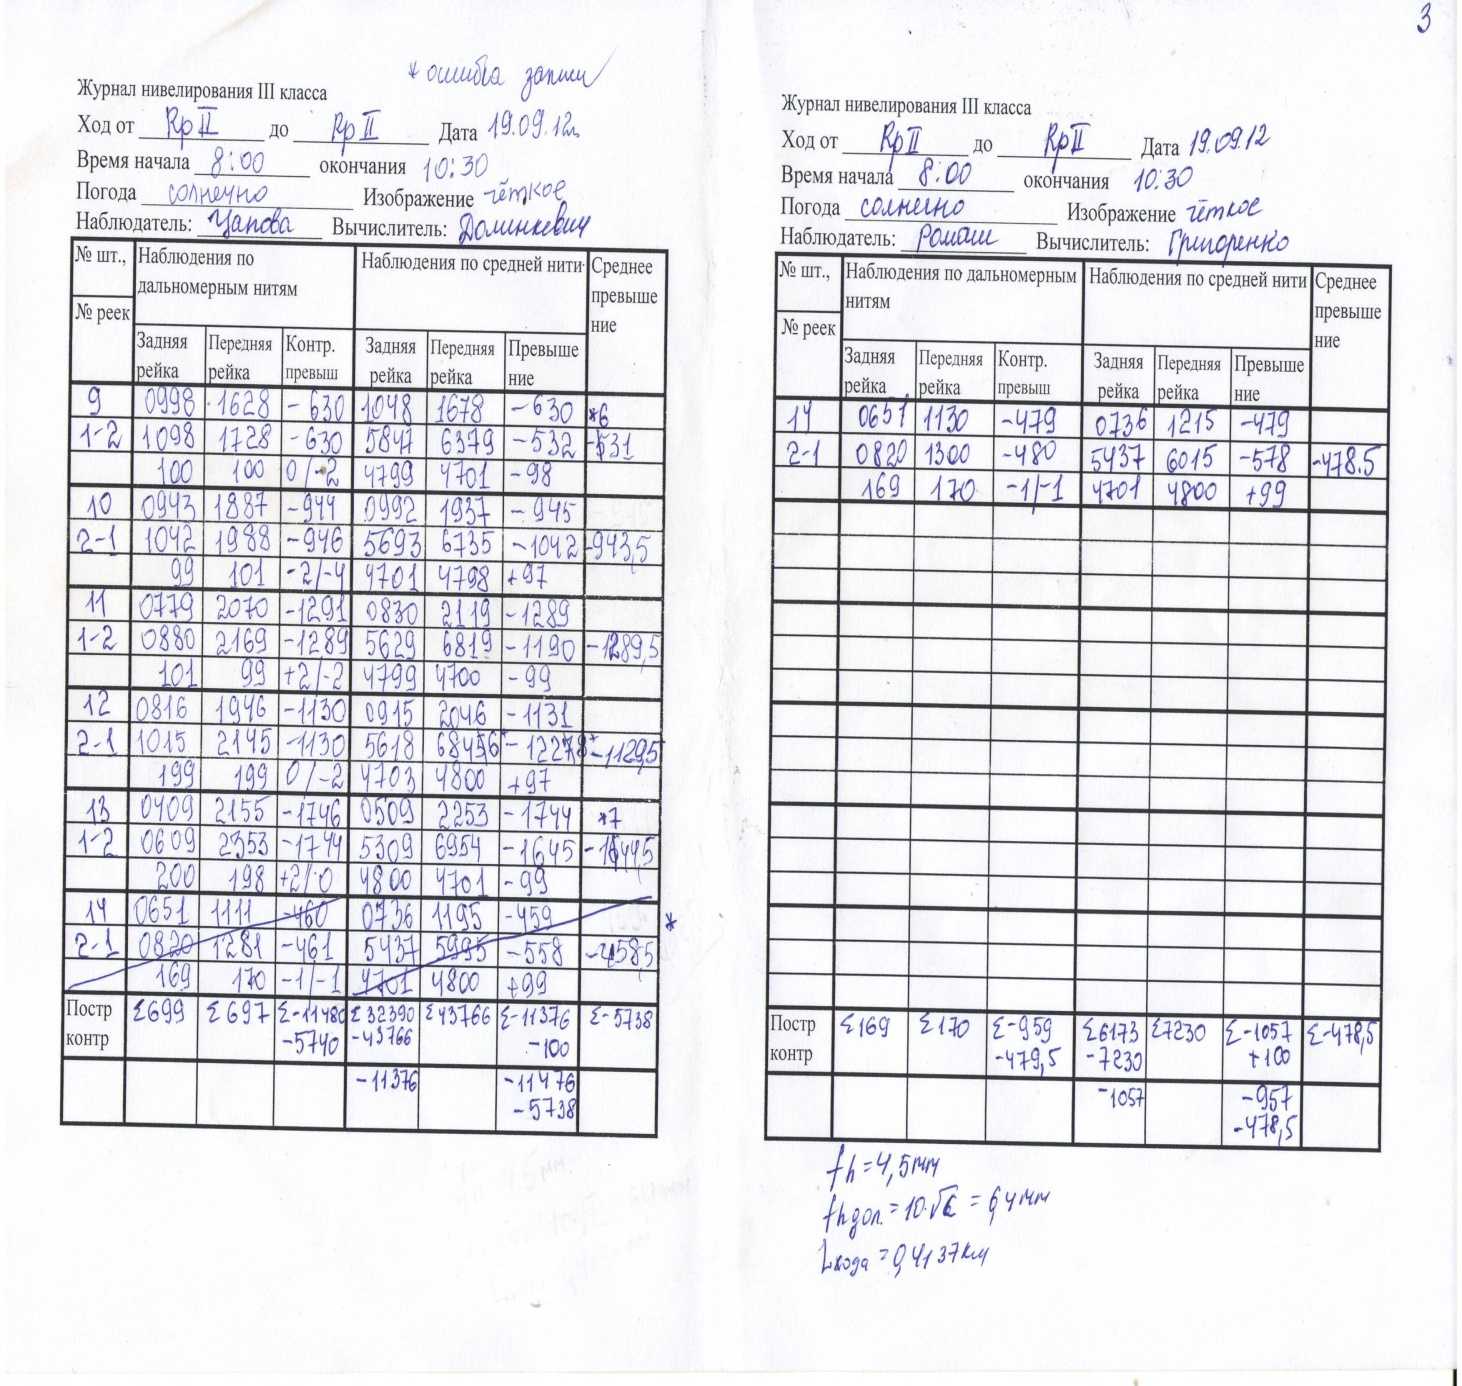 3
* ошибка записи
Журнал нивелирования III класса
Ход от Rp II до Rp II Дата 19.09.12г.
Время начала 8:00 окончания 10:30
Погода солнечно Изображение чёткое
Наблюдатель: Цапова Вычислитель: Доминкевич
№ шт., Наблюдения по дальномерным нитям Наблюдения по средней нити Среднее превыше ние
№ реек Задняя рейка Передняя рейка Контр. превыш Задняя рейка Передняя рейка Превыше ние
9 0998 1628 -630 1048 1678 -630 *6
1-2 1098 1728 -630 5847 6379 -532 -531
100 100 0/-2 4799 4701 -98
10 0943 1887 -944 0992 1937 -945
2-1 1042 1988 -946 5693 6735 -1042 -943,5
99 101 -2/-4 4701 4798 +97
11 0779 2070 -1291 0830 2119 -1289
1-2 0880 2169 -1289 5629 6819 -1190 -1289,5
101 99 +2/-2 4799 4700 -99
12 0816 1946 -1130 0915 2046 -1131
2-1 1015 2145 -1130 5618 6846* -1228* -1129,5
199 199 0/-2 4703 4800 +97
13 0409 2155 -1746 0509 2253 -1744 *7
1-2 0609 2353 -1744 5309 6954 -1645 -1644,5
200 198 +2/0 4800 4701 -99
14 0651 1111 -460 0736 1195 -459 *
2-1 0820 1281 -461 5437 5995 -558 -458,5
169 170 -1/-1 4701 4800 +99
Постр контр Σ699 Σ697 Σ-11480 Σ32390 Σ43766 Σ-11376 Σ-5738
-5740 -43766 -100
-11376 -11476
-5738
Журнал нивелирования III класса
Ход от Rp II до Rp II Дата 19.09.12
Время начала 8:00 окончания 10:30
Погода солнечно Изображение чёткое
Наблюдатель: Ромаш Вычислитель: Григоренко
№ шт., Наблюдения по дальномерным нитям Наблюдения по средней нити Среднее превыше ние
№ реек Задняя рейка Передняя рейка Контр. превыш Задняя рейка Передняя рейка Превыше ние
14 0651 1130 -479 0736 1215 -479
2-1 0820 1300 -480 5437 6015 -578 -478.5
169 170 -1/-1 4701 4800 +99
Постр контр Σ169 Σ170 Σ-959 Σ6173 Σ7230 Σ-1057 Σ-478,5
-479,5 -7230 +100
-1057 -957
-478,5
fh = 4,5 мм
fh доп. = 10·√L = 6,4 мм
Lхода = 0,4137 км